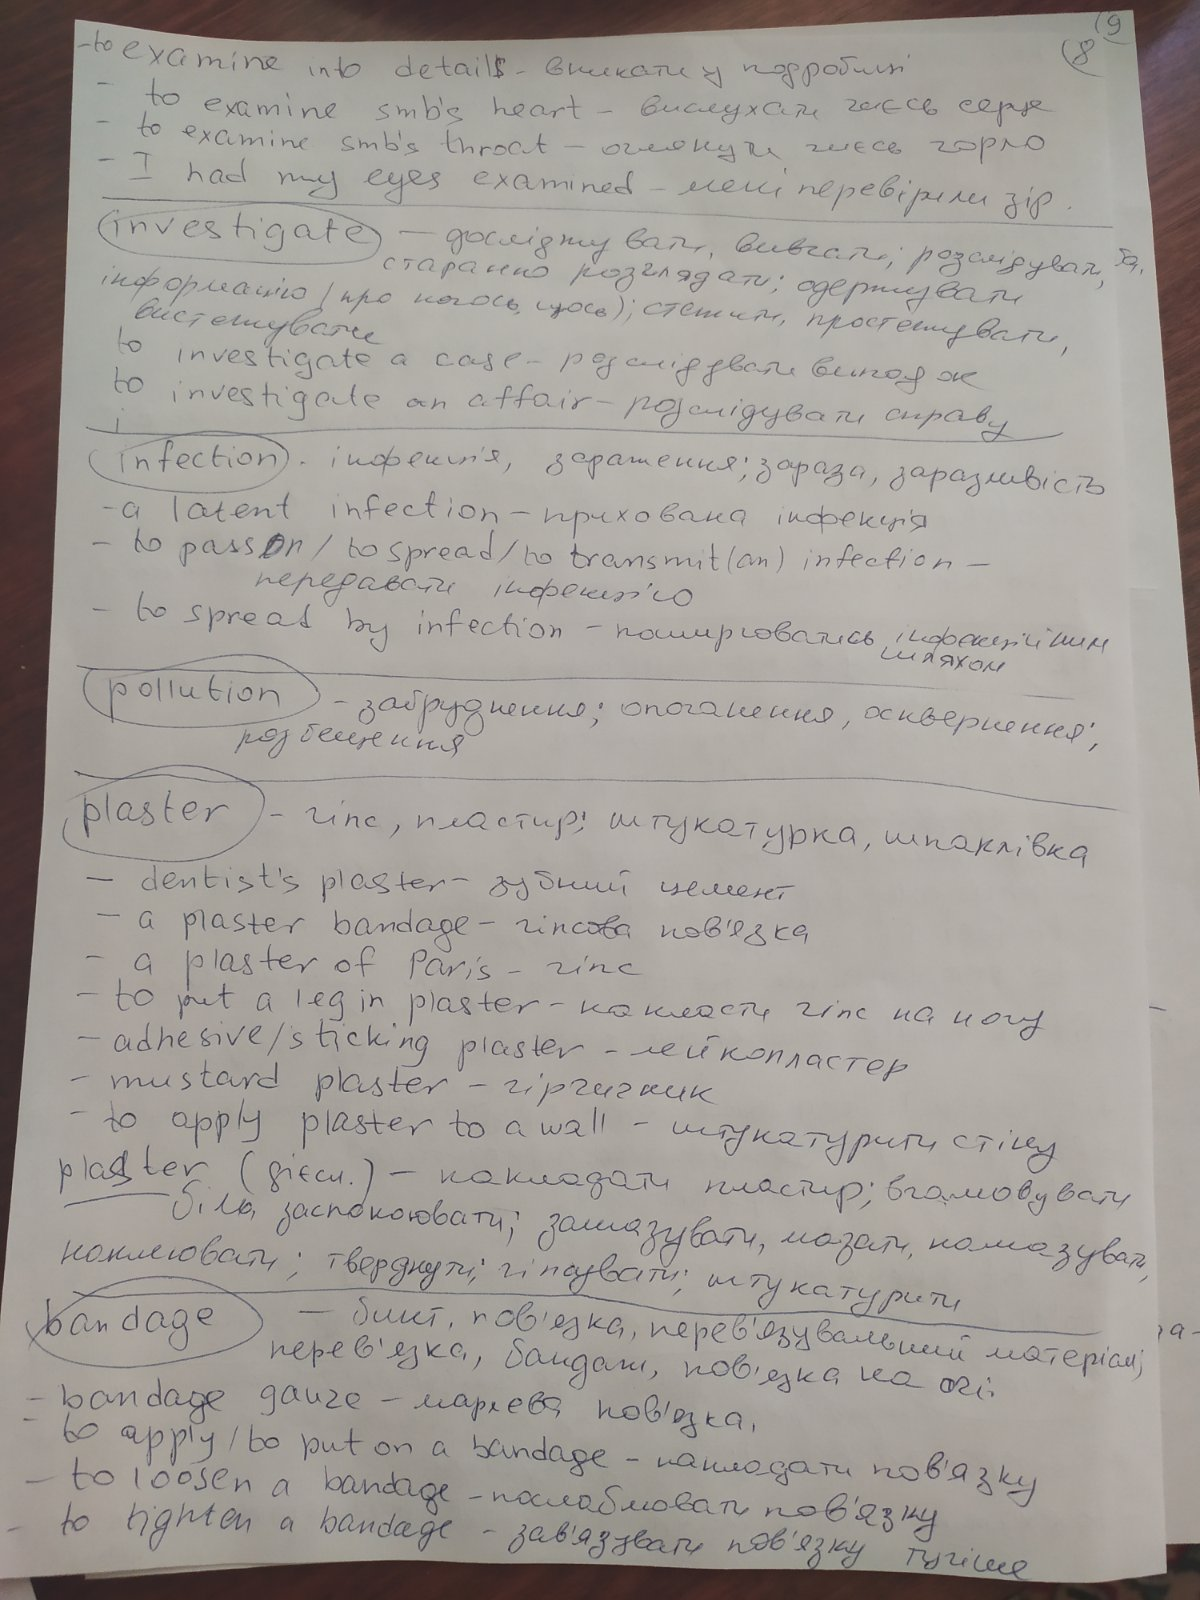 9
8
- to examine into details - вникати у подробиці
- to examine smb's heart - вислухати чиєсь серце
- to examine smb's throat - оглянути чиєсь горло
- I had my eyes examined - мені перевірили зір.
investigate - досліджувати, вивчати; розслідувати,
старанно розглядати; одержувати
інформацію (про когось, щось); стежити, простежувати,
вистежувати
to investigate a case - розслідувати випадок
to investigate an affair - розслідувати справу
infection - інфекція, зараження; зараза, заразливість
- a latent infection - прихована інфекція
- to pass on / to spread / to transmit (an) infection -
передавати інфекцію
- to spread by infection - поширюватись інфекційним
шляхом
pollution - забруднення; опоганення, осквернення;
розбещення
plaster - гіпс, пластир; штукатурка, шпаклівка
- dentist's plaster - зубний цемент
- a plaster bandage - гіпсова пов'язка
- a plaster of Paris - гіпс
- to put a leg in plaster - накласти гіпс на ногу
- adhesive/sticking plaster - лейкопластер
- mustard plaster - гірчичник
- to apply plaster to a wall - штукатурити стіну
plaster (дієсл.) - накладати пластир; вгамовувати
біль, заспокоювати; замазувати, мазати, намазувати,
наклеювати; тверднути; гіпсувати; штукатурити
bandage - бинт, пов'язка, перев'язувальний матеріал;
перев'язка, бандаж, пов'язка на очі
- bandage gauze - марлева пов'язка,
- to apply / to put on a bandage - накладати пов'язку
- to loosen a bandage - послаблювати пов'язку
- to tighten a bandage - зав'язувати пов'язку тугіше